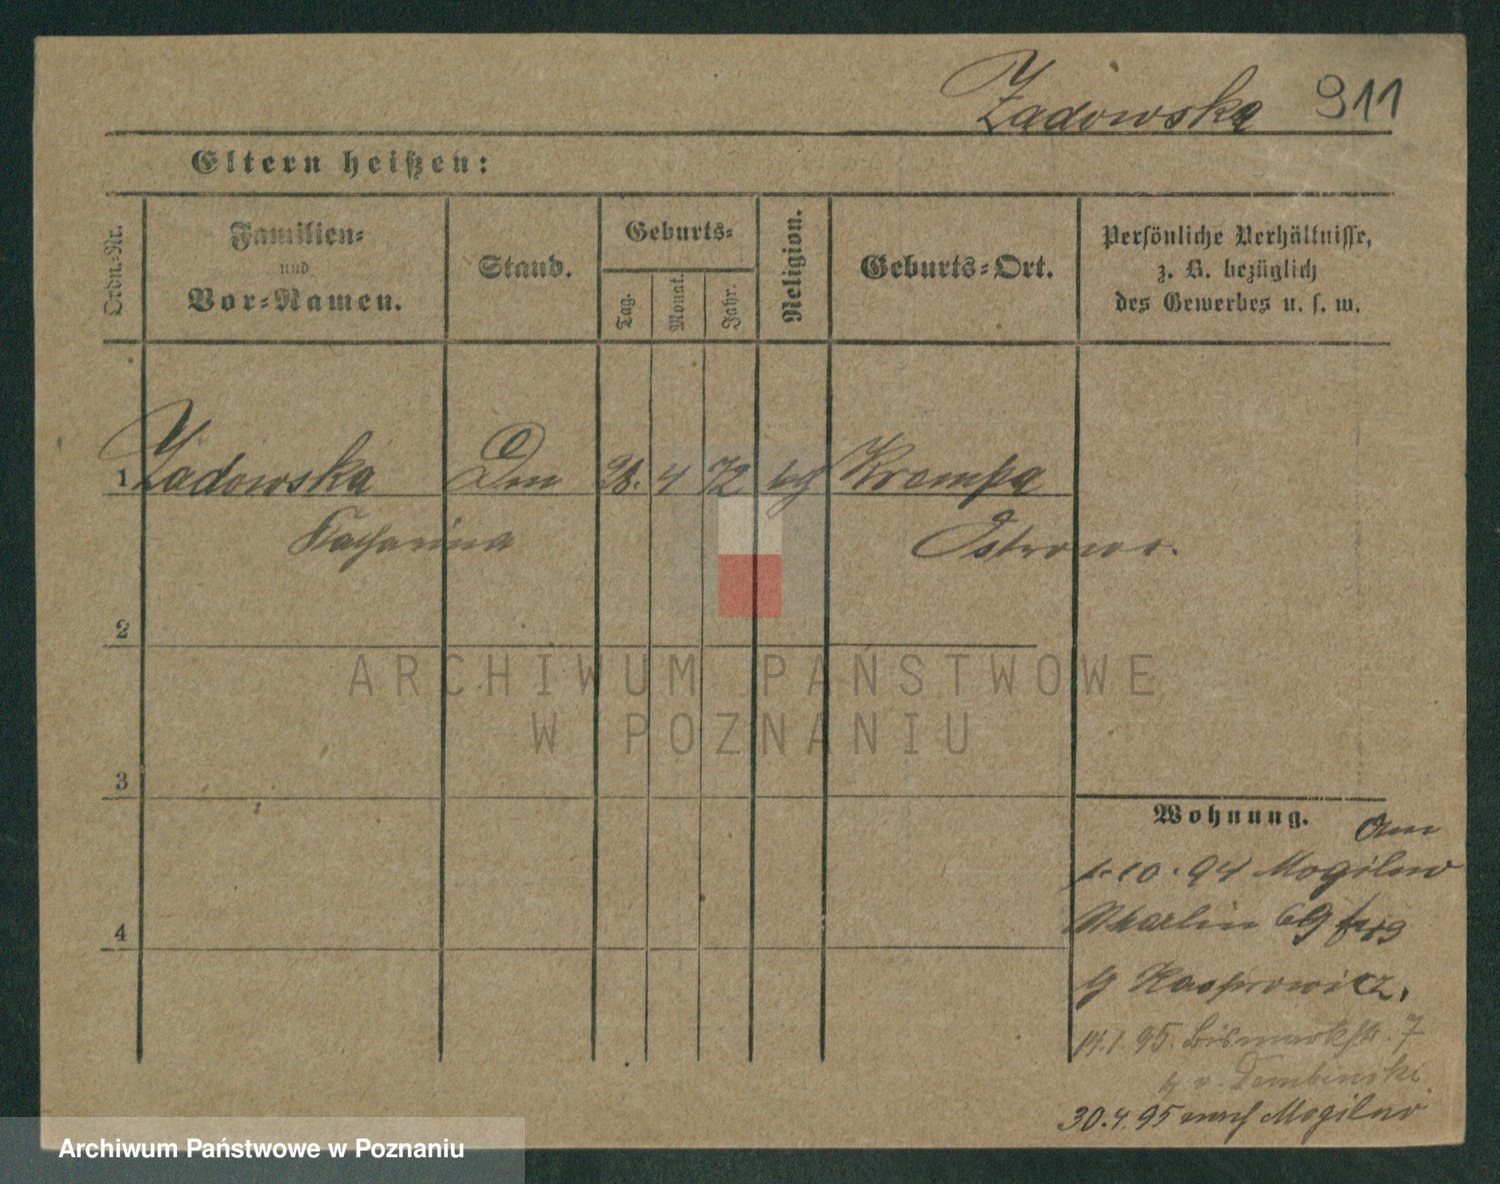 Zadowska 911
Eltern heißen:
Ordn.-Nr.
Familien-
und
Vor-Namen.
Stand.
Geburts-
Tag.
Monat.
Jahr.
Religion.
Geburts-Ort.
Persönliche Verhältnisse,
z. B. bezüglich
des Gewerbes u. s. w.
1 Zadowska Dm 28. 4 72 kg Krempa
Katharina Ostrowo.
2
3
4
Wohnung. Am
1.10.94 Mogilno
Martin 69
b/ Kasprowicz.
14.1.95. Bismarckstr. 7
b v. Dembinski
30.4.95 nach Mogilno
ARCHIWUM PAŃSTWOWE
W POZNANIU
Archiwum Państwowe w Poznaniu